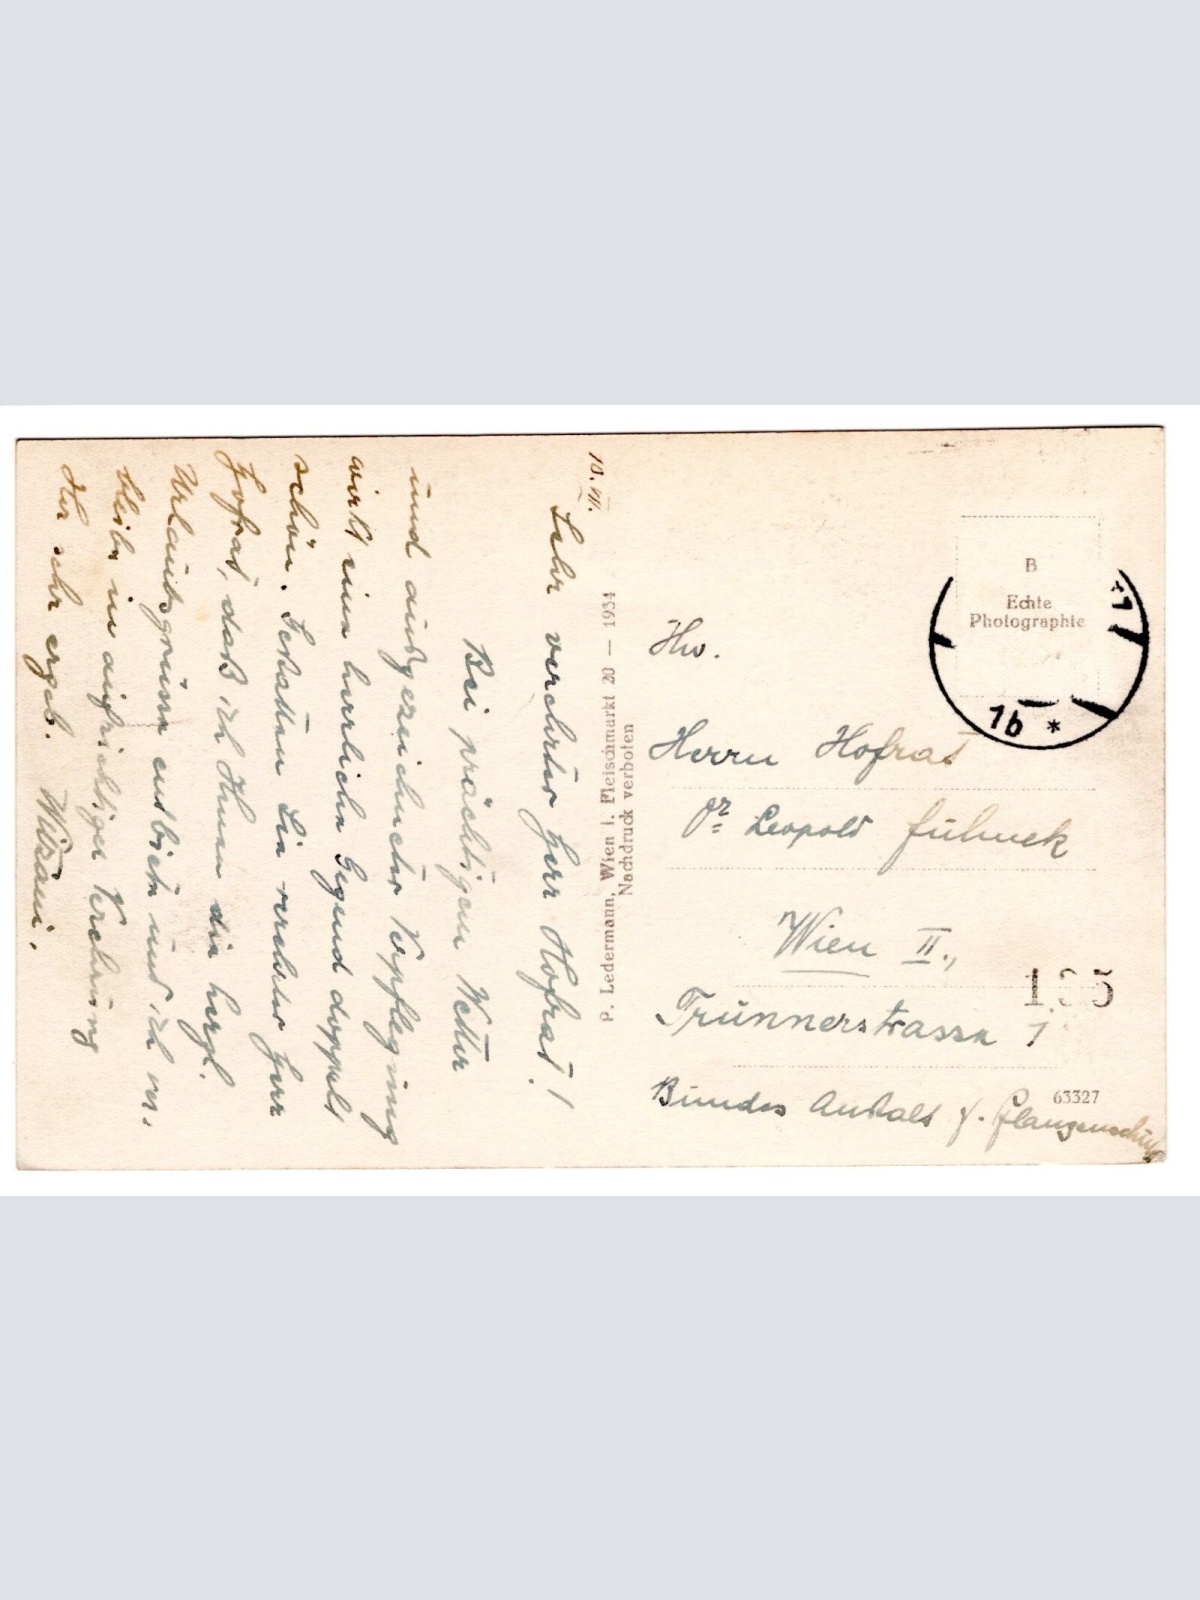 10. VII.
Sehr verehrter Herr Hofrat!
Bei prächtigem Wetter
und ausgezeichneter Verpflegung
wirkt eine herrliche Gegend doppelt
schön. Gestatten Sie verehrter Herr
Hofrat, daß ich Ihnen die herzl.
Urlaubsgrüße entbiete und ich ver-
bleibe in aufrichtiger Verehrung
Ihr sehr ergeb.
P. Ledermann, Wien I. Fleischmarkt 20 — 1934
Nachdruck verboten
B
Echte
Photographie
1b *
Hw.
Herrn Hofrat
Dr. Leopold Fulmek
Wien II.,
Trunnerstrasse 1
Bundes Anstalt f. Pflanzenschutz
63327